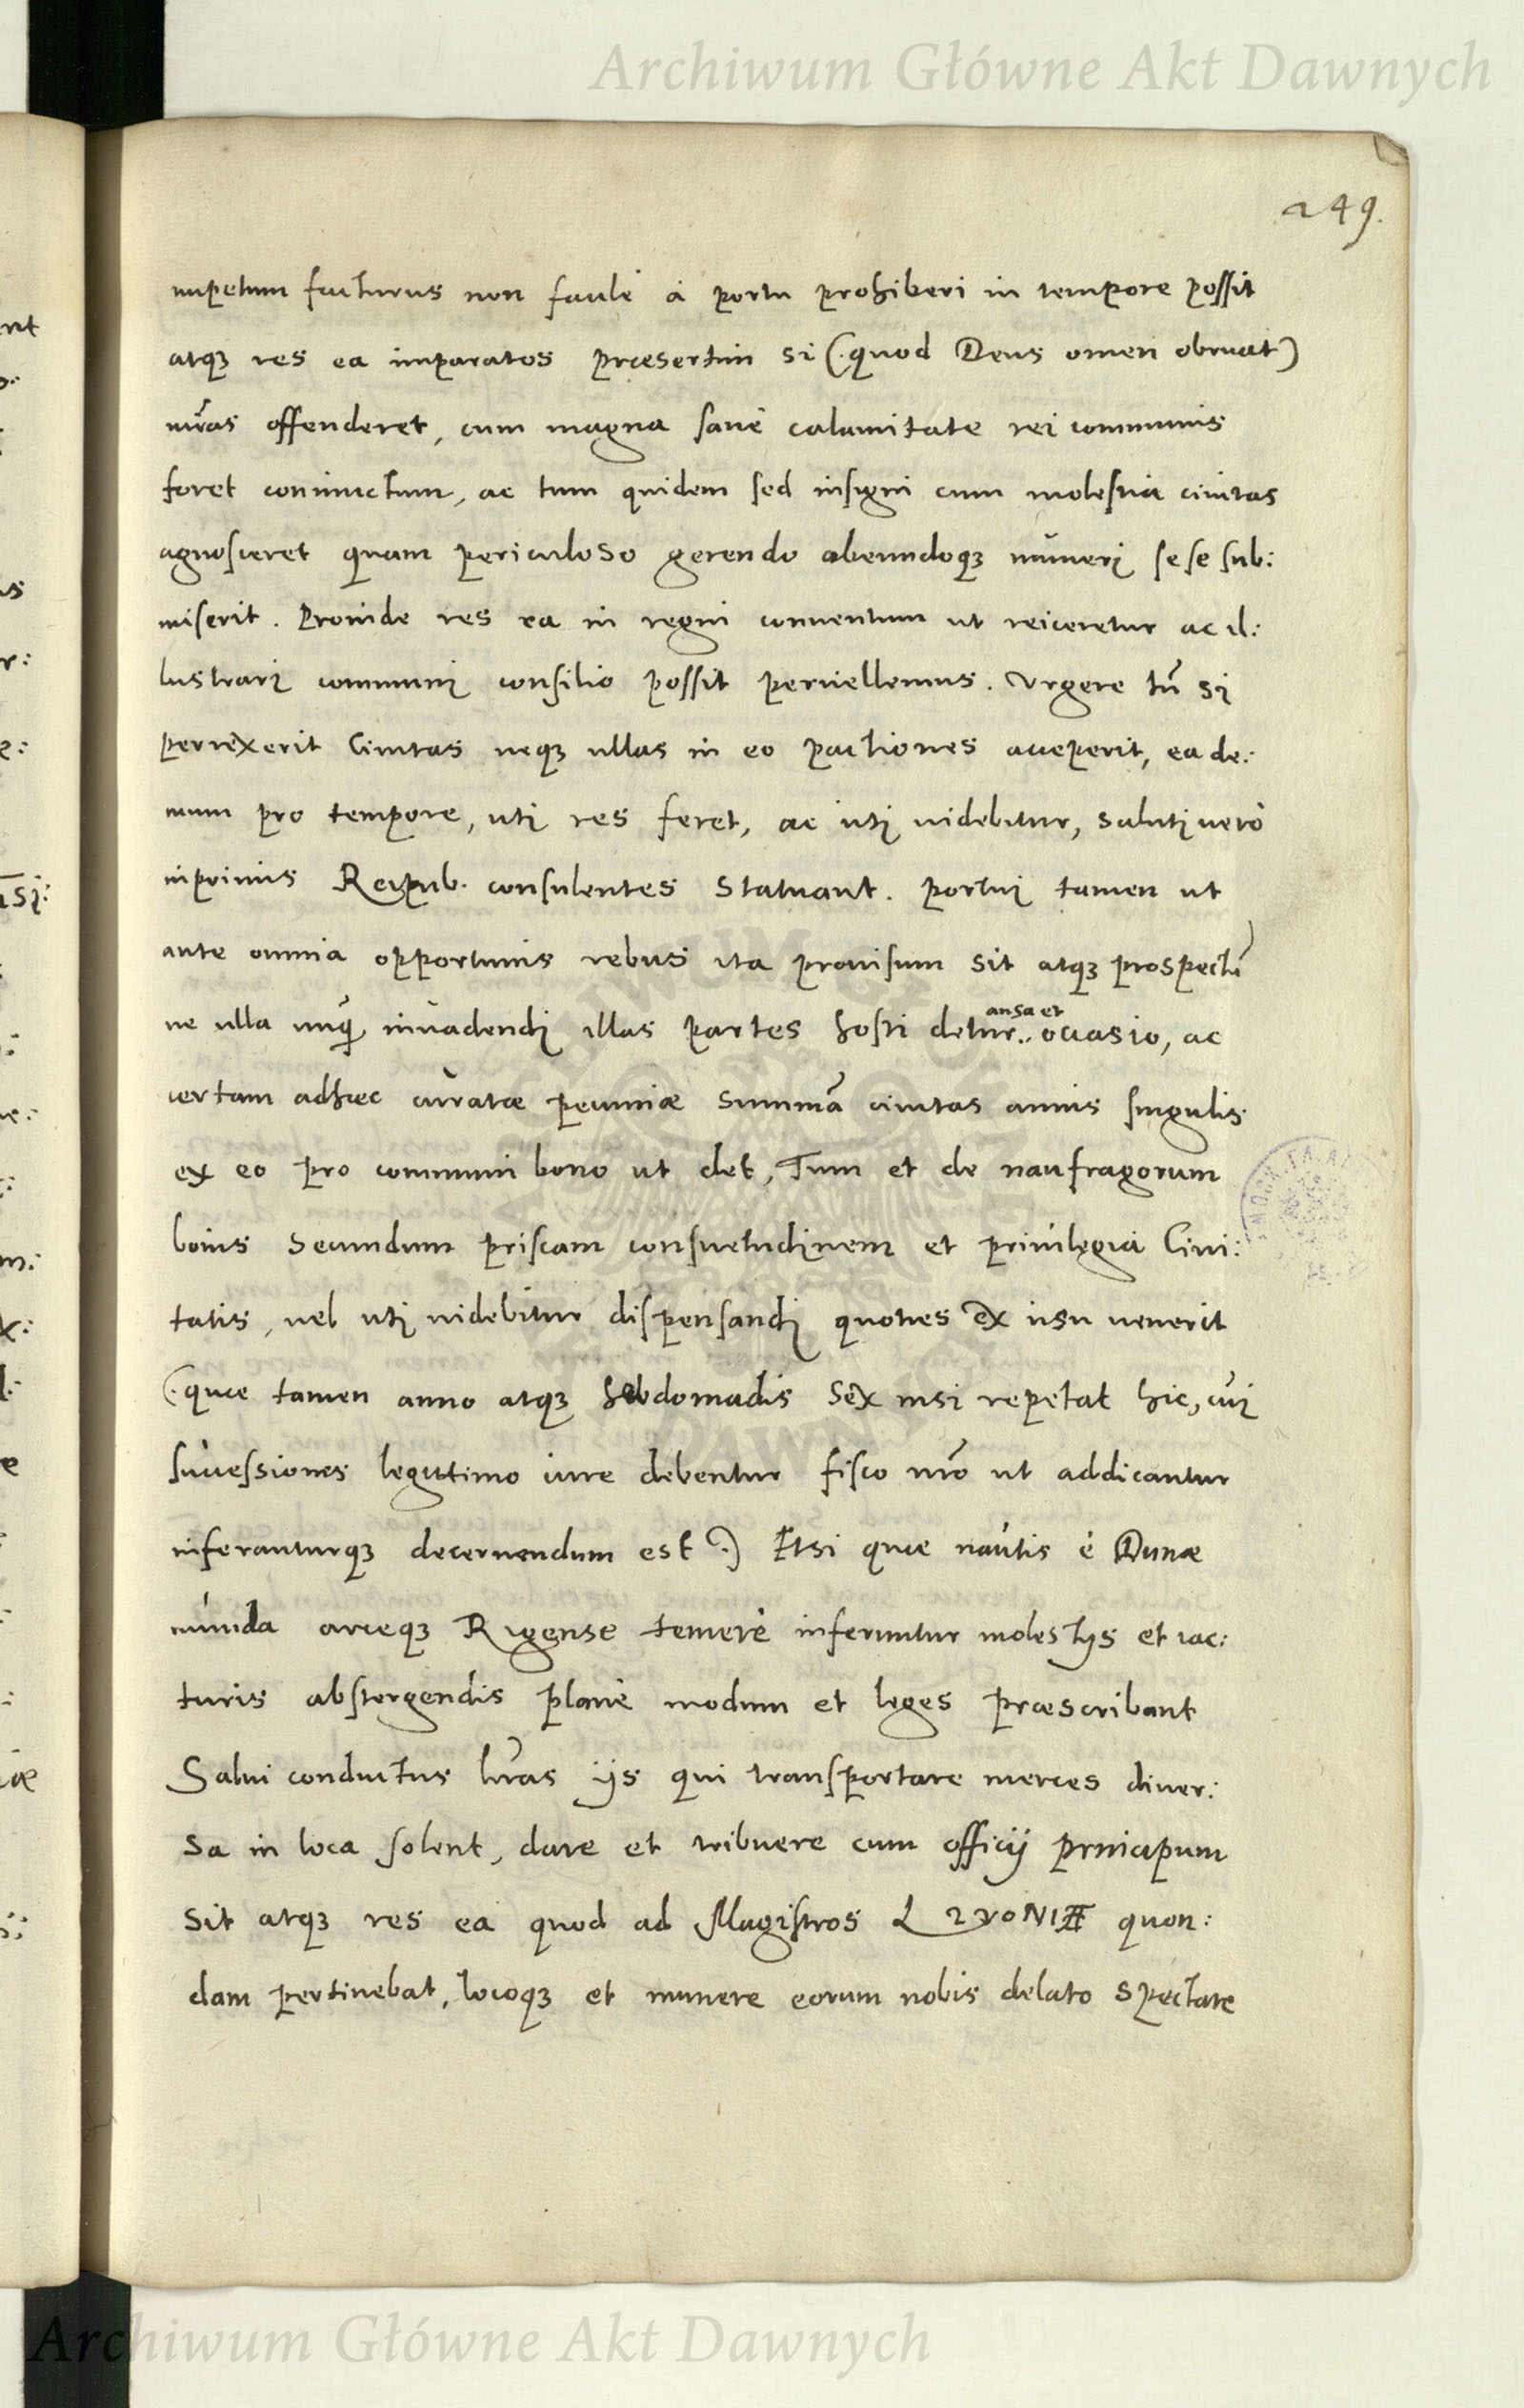 Archiwum Główne Akt Dawnych
249.
impetum facturus non facilè à portu prohiberi in tempore possit
atq₃ res ea imparatos præsertim si (.quod Deus omen obruat)
nr̃as offenderet, cum magna sanè calamitate rei communis
foret coniunctum, ac tum quidem sed insigni cum molestia ciuitas
agnosceret quam periculoso gerendo abeundoq₃ muneri se se sub:
miserit. Proinde res ea in regni conuentum ut reiiceretur ac il:
lustrari communi consilio possit peruellemus. Vrgere tn̄ si
perrexerit Ciuitas neq₃ ullas in eo pactiones acceperit, ea de:
mum pro tempore, uti res feret, ac uti uidebitur, saluti uerò
inprimis Reipub. consulentes statuant. portui tamen ut
ante omnia opportunis rebus ita prouisum sit atq₃ prospectũ
ne ulla unq̃ inuadendi illas partes hosti detur.. ansa et occasio, ac
certam adhæc curatæ pecuniæ summã ciuitas annis singulis
ex eo pro communi bono ut det, Tum et de naufragorum
bonis secundum priscam consuetudinem et priuilegia Ciui:
tatis, uel uti uidebitur dispensandi quoties ex usu uenerit
(.quæ tamen anno atq₃ hebdomadis sex nisi repetat hic, cui
successiones legittimo iure debentur fisco nr̃o ut addicantur
inferanturq₃ decernendum est.) Etsi quæ nautis è Dunæ
munda arceq₃ Rigense temerè inferuntur molestijs et iac:
turis abstergendis planè modum et leges præscribant
Salui conductus lr̃as ijs qui transportare merces diuer:
sa in loca solent, dare et tribuere cum officij principum
sit atq₃ res ea quod ad Magistros LIVONIÆ quon:
dam pertinebat, locoq₃ et munere eorum nobis delato spectare
Archiwum Główne Akt Dawnych